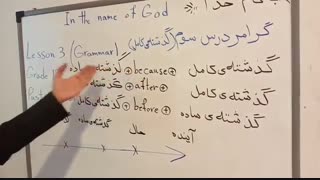 In the name of God
گرامر درس سوم (گذشته‌ی کامل)
Lesson 3 (Grammar)
گذشته‌ی کامل ⊕ because ⊕ گذشته‌ی ساده
Grade
گذشته‌ی کامل ⊕ after ⊕ گذشته‌ی ساده
گذشته‌ی ساده ⊕ before ⊕ گذشته‌ی
آینده حال